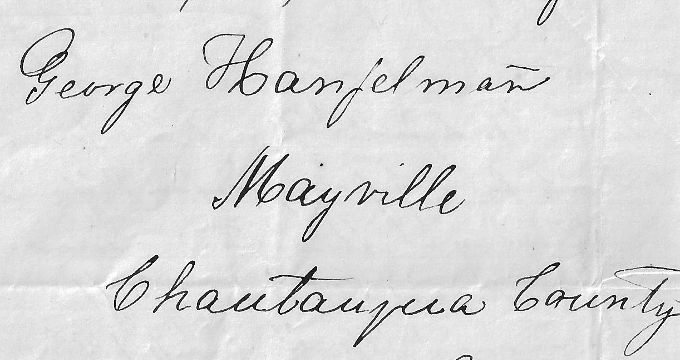 George Hanselman̄
Mayville
Chautauqua County